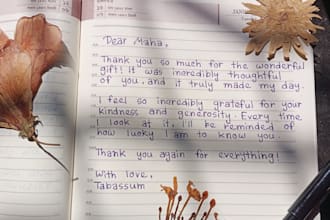 Dear Maha,
Thank you so much for the wonderful
gift! It was incredibly thoughtful
of you, and it truly made my day.
I feel so incredibly grateful for your
kindness and generosity. Every time
I look at it, I'll be reminded of
how lucky I am to know you.
Thank you again for everything!
With love,
Tabassum